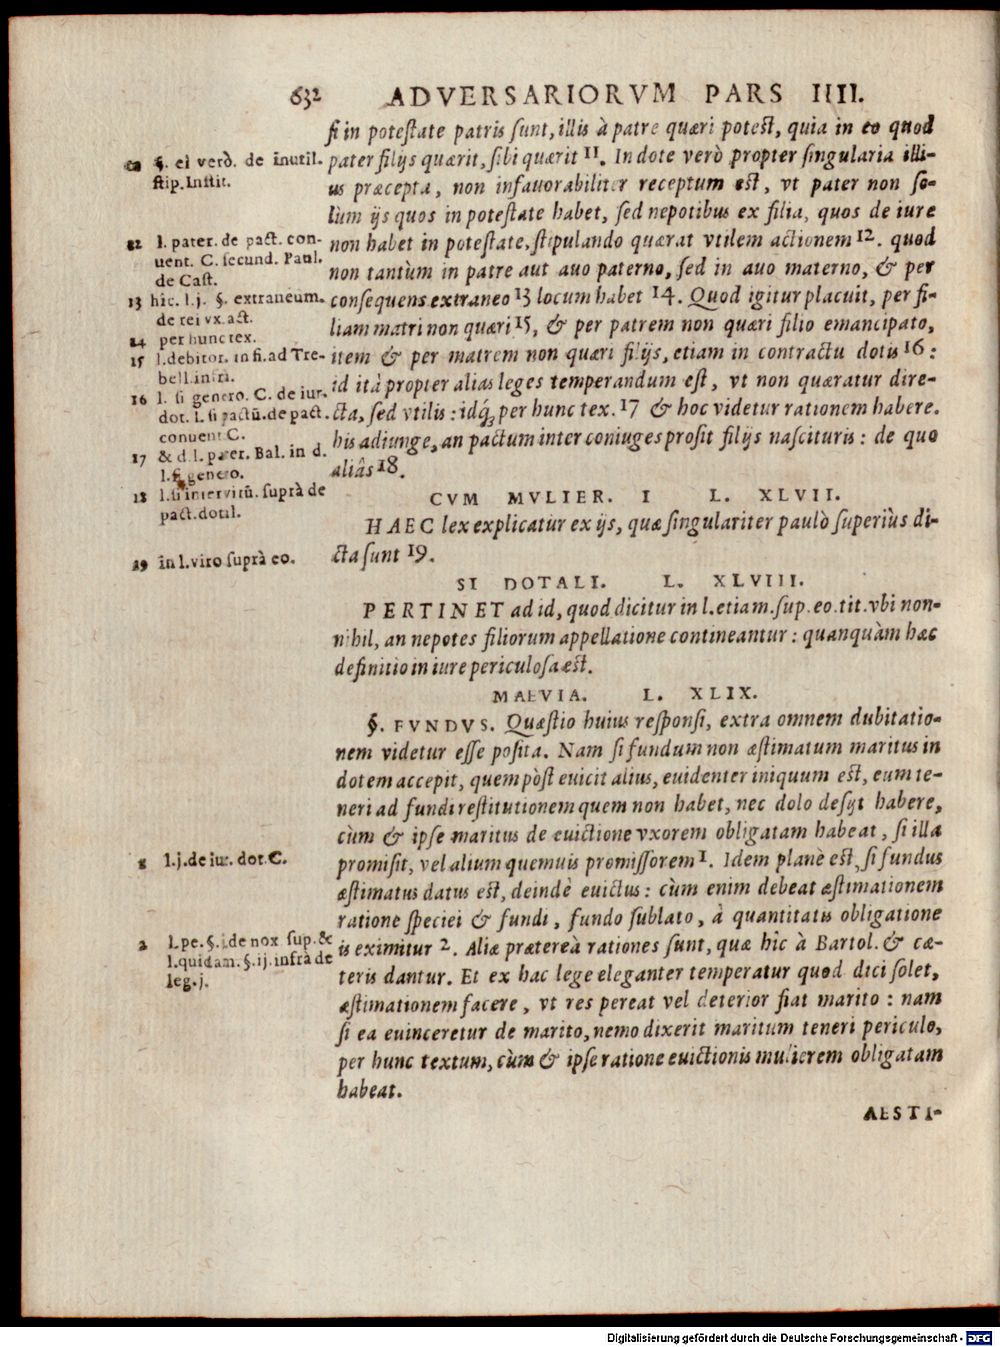 632 ADVERSARIORVM PARS IIII.
ſi in poteſtate patris ſunt, illis à patre quæri poteſt, quia in eo quod
pater filijs quærit, ſibi quærit 11. In dote verò propter ſingularia illi-
us præcepta, non infauorabiliter receptum eſt, vt pater non ſo-
lùm ijs quos in poteſtate habet, ſed nepotibus ex filia, quos de iure
non habet in poteſtate, ſtipulando quærat vtilem actionem 12. quod
non tantùm in patre aut auo paterno, ſed in auo materno, & per
conſequens extraneo 13 locum habet 14. Quod igitur placuit, per fi-
liam matri non quæri 15, & per patrem non quæri filio emancipato,
item & per matrem non quæri filijs, etiam in contractu dotis 16:
id ità propter alias leges temperandum eſt, vt non quæratur dire-
cta, ſed vtilis: idq́; per hunc tex. 17 & hoc videtur rationem habere.
his adiunge, an pactum inter coniuges proſit filijs naſcituris: de quo
aliâs 18.
CVM MVLIER. I L. XLVII.
HAEC lex explicatur ex ijs, quæ ſingulariter paulò ſuperiùs di-
cta ſunt 19.
SI DOTALI. L. XLVIII.
PERTINET ad id, quod dicitur in l. etiam. ſup. eo. tit. vbi non-
nihil, an nepotes filiorum appellatione contineantur: quanquàm hæc
definitio in iure periculoſa eſt.
MAEVIA. L. XLIX.
§. FVNDVS. Quæſtio huius reſponſi, extra omnem dubitatio-
nem videtur eſſe poſita. Nam ſi fundum non æſtimatum maritus in
dotem accepit, quem pòſt euicit alius, euidenter iniquum eſt, eum te-
neri ad fundi reſtitutionem quem non habet, nec dolo deſijt habere,
cùm & ipſe maritus de euictione vxorem obligatam habeat, ſi illa
promiſit, vel alium quemuis promiſſorem 1. Idem planè eſt, ſi fundus
æſtimatus datus eſt, deindè euictus: cùm enim debeat æſtimationem
ratione ſpeciei & fundi, fundo ſublato, à quantitatis obligatione
is eximitur 2. Aliæ prætereà rationes ſunt, quæ hîc à Bartol. & cæ-
teris dantur. Et ex hac lege eleganter temperatur quod dici ſolet,
æſtimationem facere, vt res pereat vel deterior fiat marito: nam
ſi ea euinceretur de marito, nemo dixerit maritum teneri periculo,
per hunc textum, cùm & ipſe ratione euictionis mulierem obligatam
habeat.
AESTI-
§. ei verò. de inutil.
ſtip. Inſtit.
12 l. pater. de pact. con-
uent. C. ſecund. Paul.
de Caſt.
13 hic. l.j. §. extraneum.
de rei vx. act.
14 per hunc tex.
15 l. debitor. in fi. ad Tre-
bell. infrà.
16 l. ſi genero. C. de iur.
dot. l. ſi pactũ. de pact.
conuent C.
17 & d. l. pater. Bal. in d.
l. ſi genero.
18 l. ſi interuitũ. ſuprà de
pact. dotil.
19 in l. viro ſuprà eo.
1 l.j. de iur. dot. C.
2 l. pe. §.j. de nox. ſup. &
l. quidam. §. ij. infrà de
leg. j.
Digitalisierung gefördert durch die Deutsche Forschungsgemeinschaft - DFG